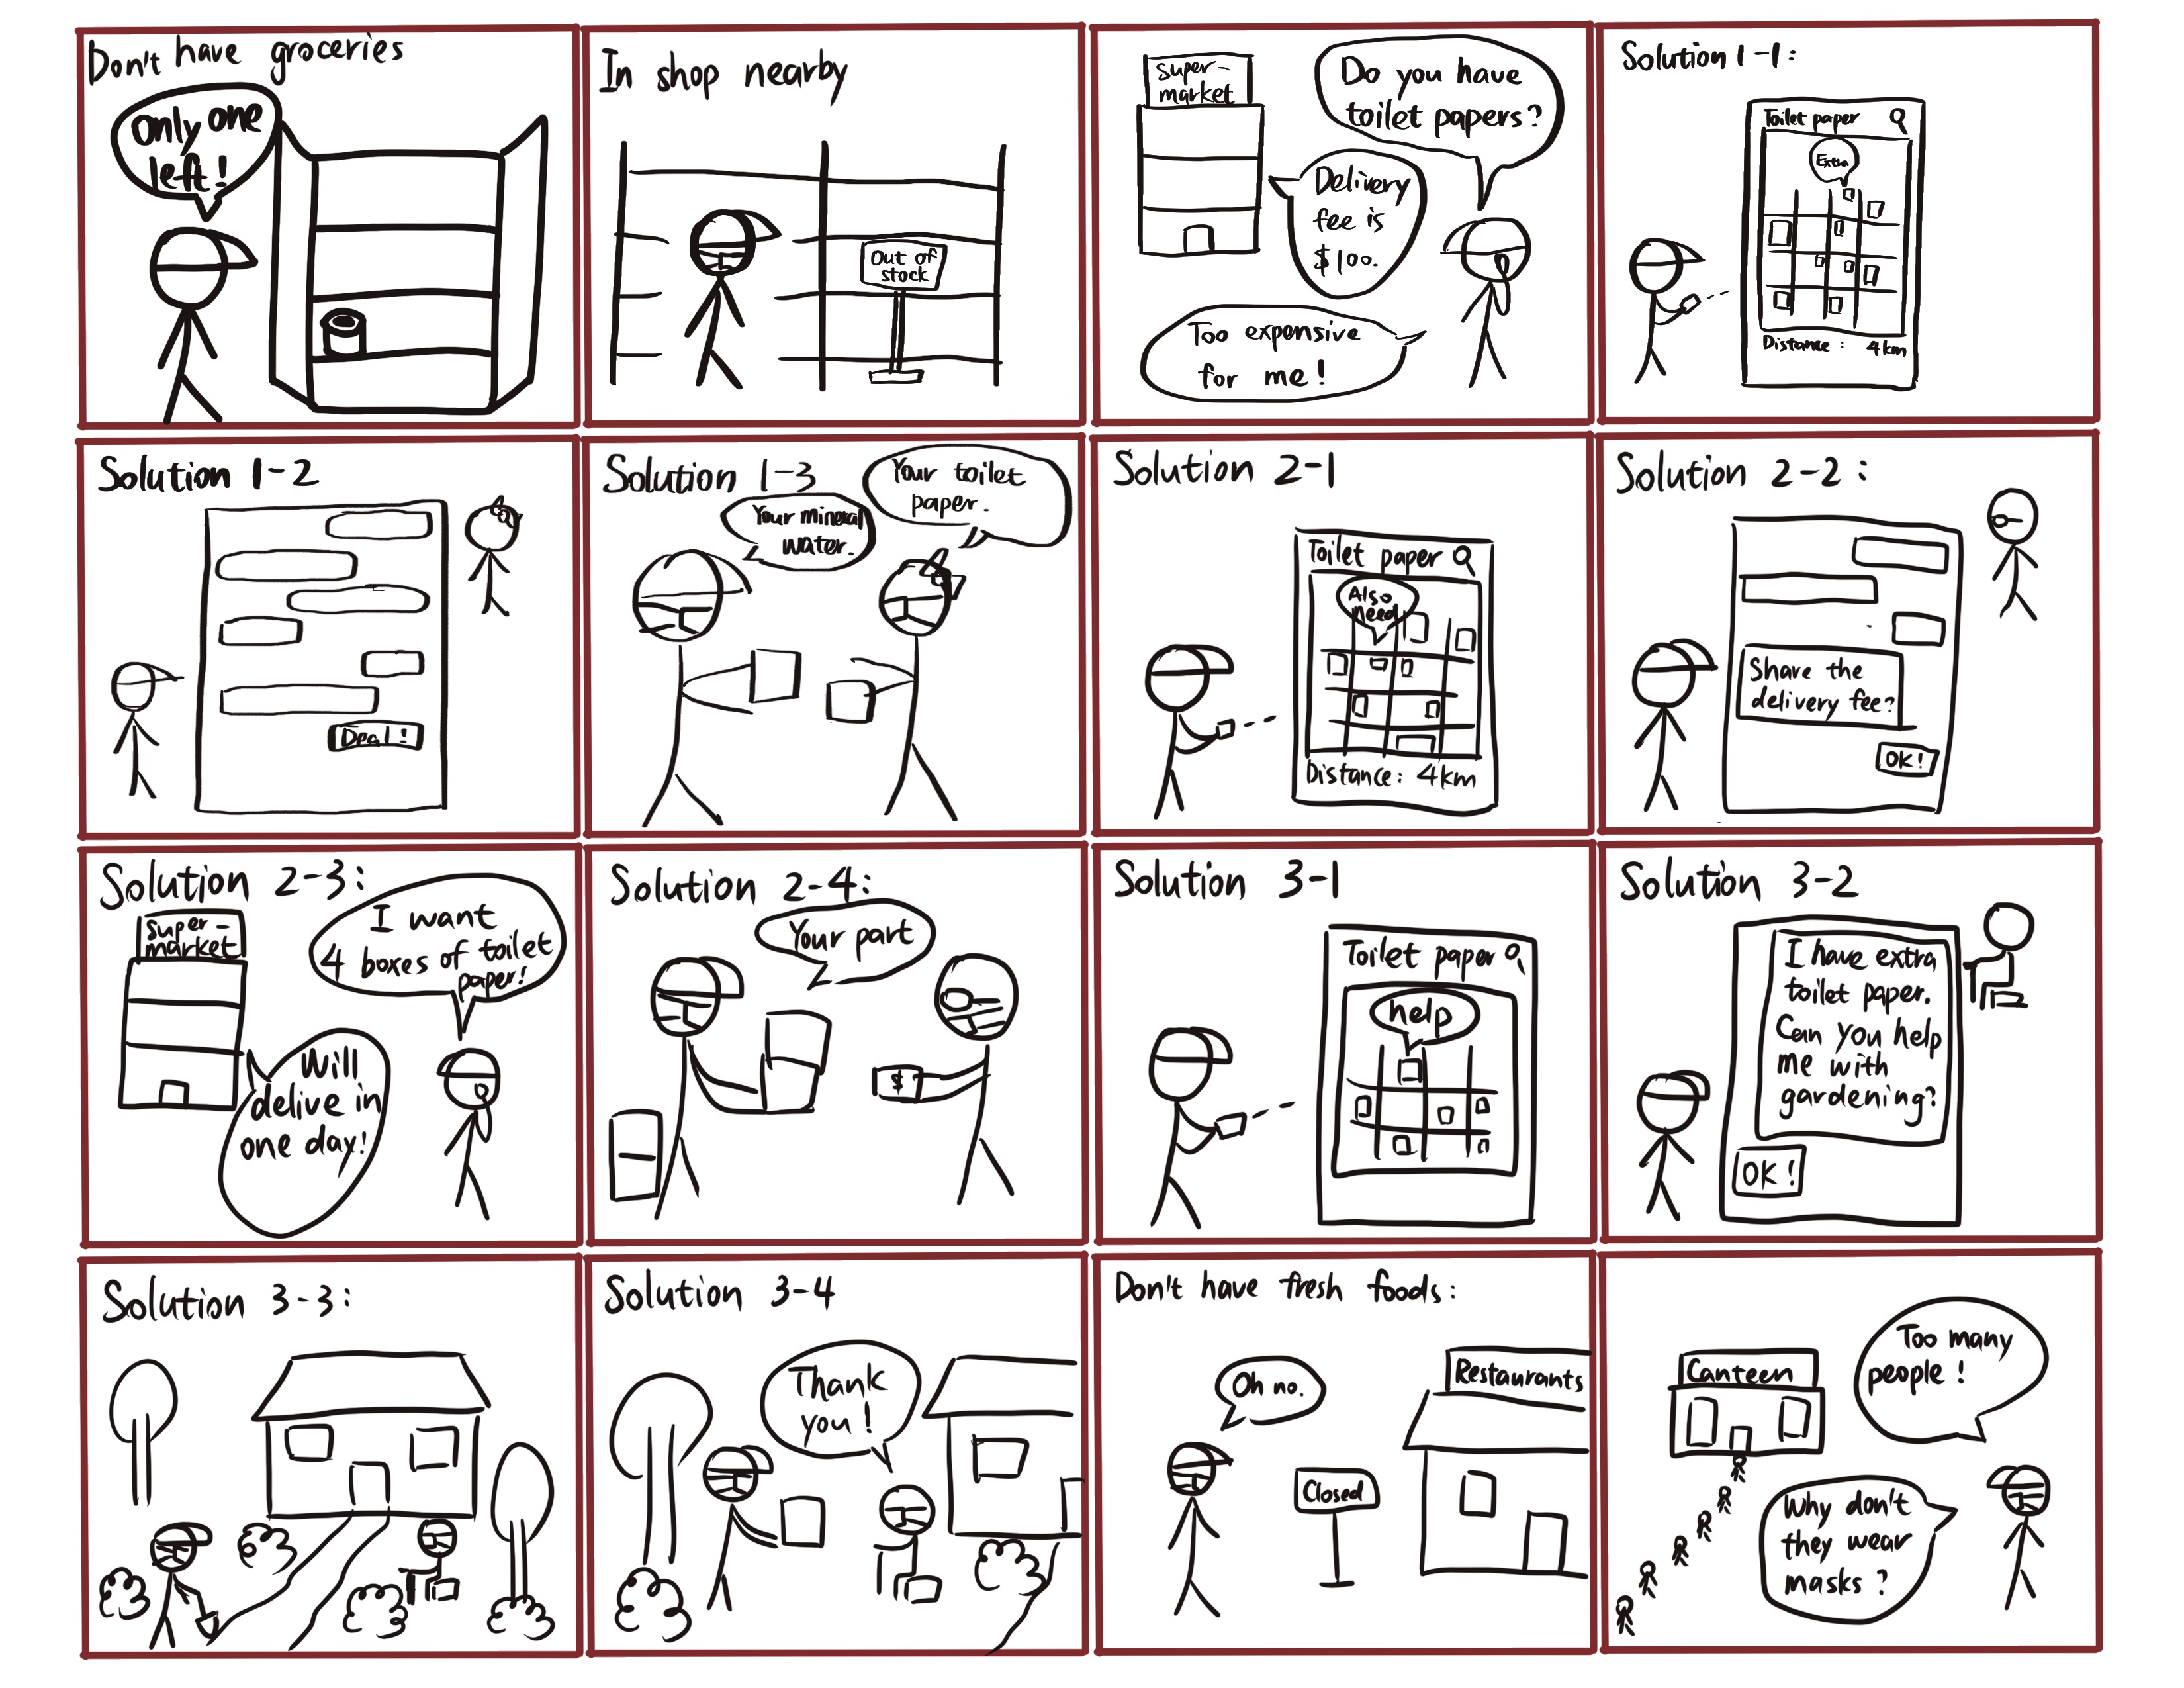 Don't have groceries
Only one
left!
In shop nearby
Out of
stock
Super-
market
Do you have
toilet papers?
Delivery
fee is
$100.
Too expensive
for me!
Solution 1-1:
Toilet paper
Extra
Distance: 4km
Solution 1-2
Deal!
Solution 1-3
Your mineral
water.
Your toilet
paper.
Solution 2-1
Toilet paper
Also
need
Distance: 4km
Solution 2-2:
Share the
delivery fee?
OK!
Solution 2-3:
Super-
market
I want
4 boxes of toilet
paper!
Will
delive in
one day!
Solution 2-4:
Your part
$
Solution 3-1
Toilet paper
help
Solution 3-2
I have extra
toilet paper.
Can you help
me with
gardening?
OK!
Solution 3-3:
Solution 3-4
Thank
you!
Don't have fresh foods:
Oh no.
Closed
Restaurants
Canteen
Too many
people!
Why don't
they wear
masks?